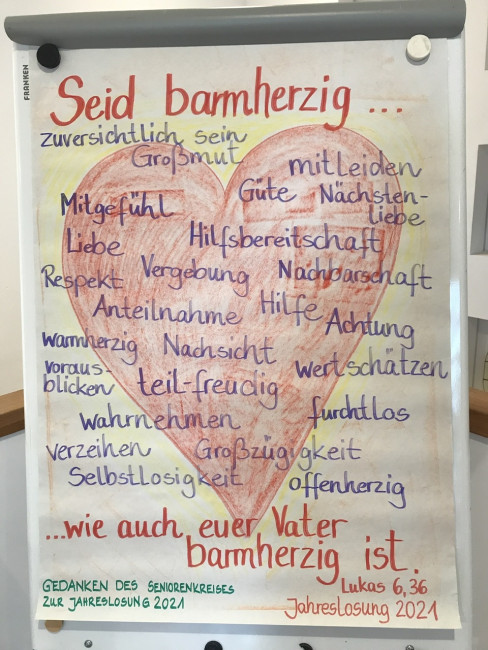 FRANKEN
Seid barmherzig ...
zuversichtlich sein
Großmut
mitleiden
Güte Nächsten-
liebe
Mitgefühl
Liebe
Hilfsbereitschaft
Respekt Vergebung Nachbarschaft
Anteilnahme Hilfe Achtung
warmherzig Nachsicht
wertschätzen
voraus-
blicken teil-freudig
wahrnehmen furchtlos
verzeihen Großzügigkeit
Selbstlosigkeit offenherzig
...wie auch euer Vater
barmherzig ist.
GEDANKEN DES SENIORENKREISES
ZUR JAHRESLOSUNG 2021
Lukas 6,36
Jahreslosung 2021